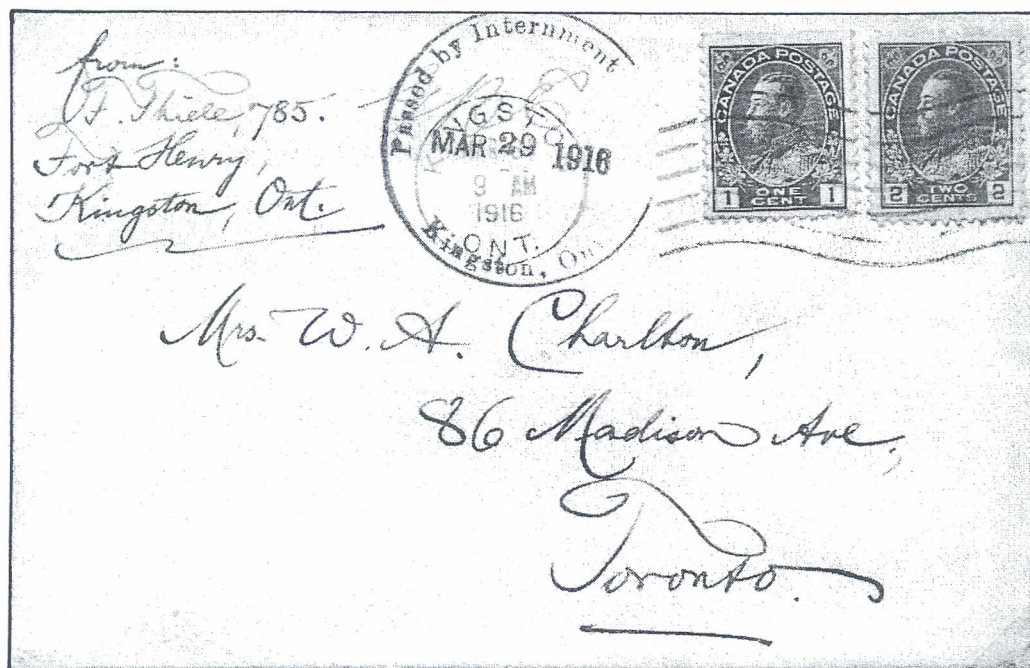 from:
F. Thiele, 785.
Fort Henry,
Kingston, Ont.
Passed by Internment
KINGSTON
MAR 29 1916
9 AM
1916
ONT.
Kingston, Ont
CANADA POSTAGE
1 ONE CENT 1
CANADA POSTAGE
2 TWO CENTS 2
Mrs. W. A. Charlton,
86 Madison Ave,
Toronto.